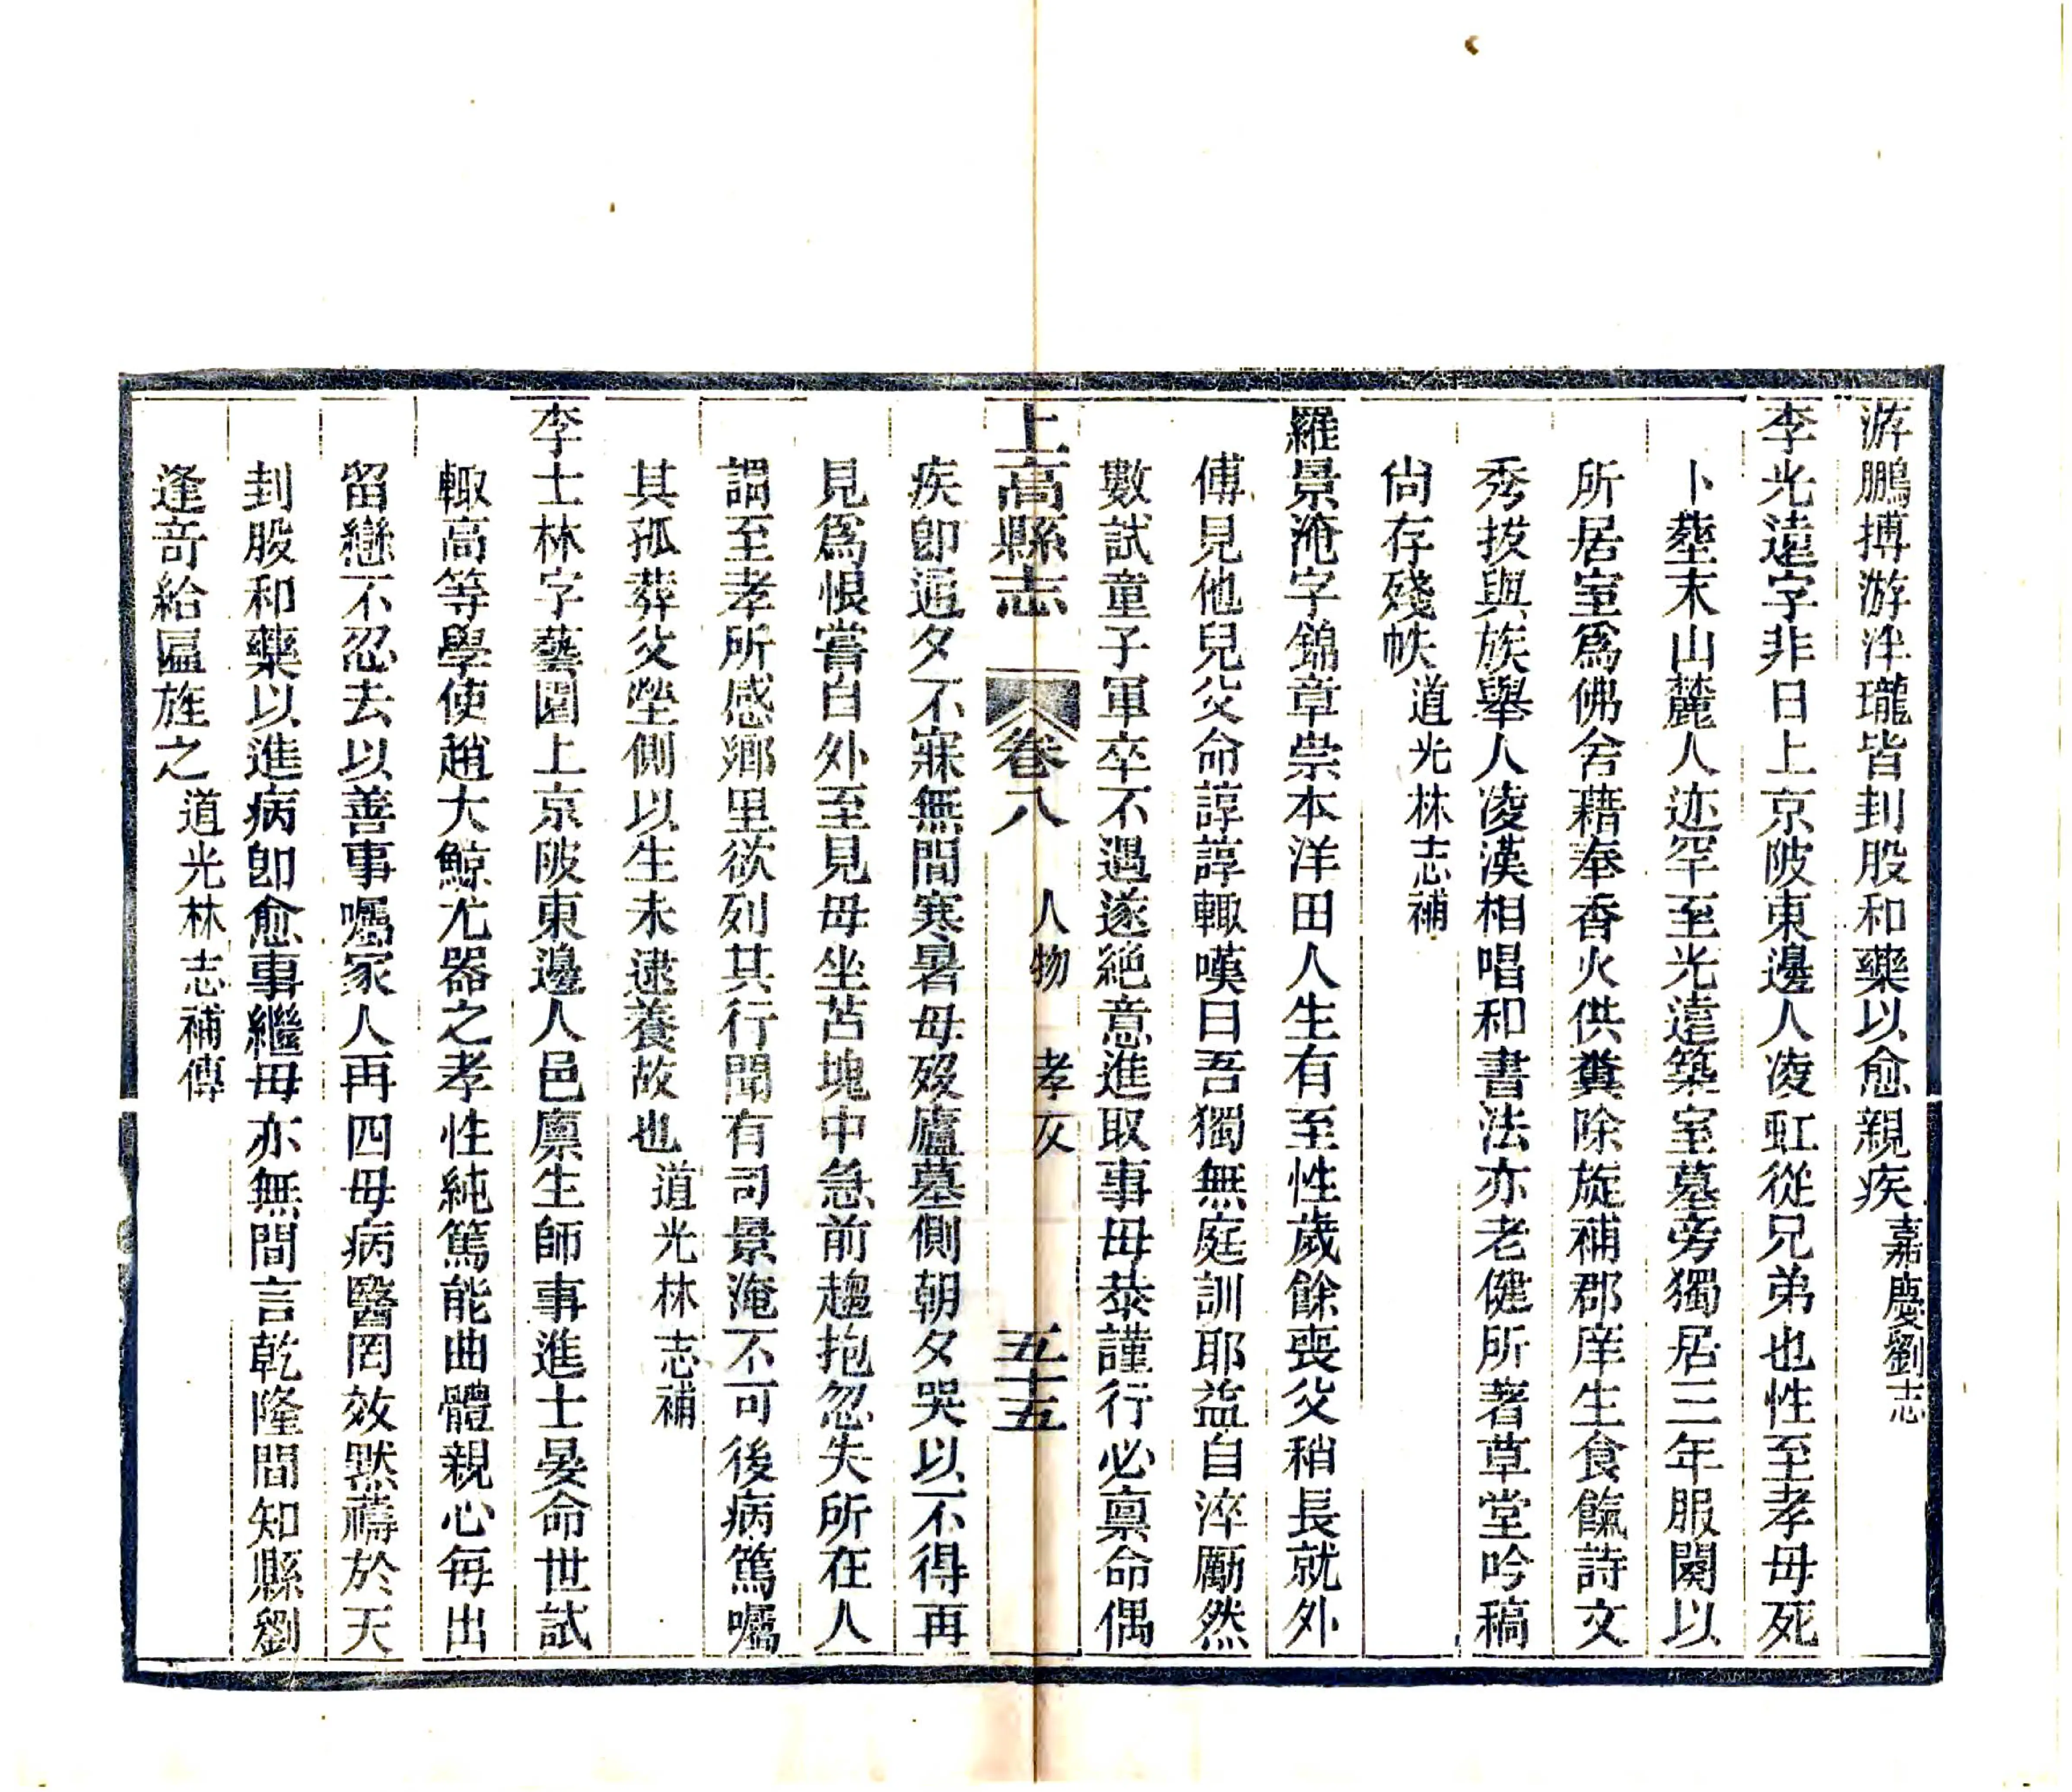 游鵬搏游泮瓏皆刲股和藥以愈親疾嘉慶劉志
李光遠字非日上京陂東邊人凌虹從兄弟也性至孝母死
卜塟末山麓人迹罕至光遠築室墓旁獨居三年服闋以
所居室爲佛舍藉奉香火供糞除旋補郡庠生食餼詩文
秀拔與族舉人凌漢相唱和書法亦老健所著草堂吟稿
尙存殘帙道光林志補
羅景淹字錦章崇本洋田人生有至性歲餘喪父稍長就外
傅見他兒父命諄諄輙嘆曰吾獨無庭訓耶益自淬厲然
數試童子軍卒不遇遂絕意進取事母恭謹行必禀命偶
上高縣志 卷八 人物 孝友 五十五
疾卽通夕不寐無間寒暑母歿廬墓側朝夕哭以不得再
見爲恨嘗自外至見母坐苫塊中急前趨抱忽失所在人
謂至孝所感鄉里欲列其行聞有司景淹不可後病篤囑
其孤葬父塋側以生未逮養故也道光林志補
李士林字藝園上京陂東邊人邑廪生師事進士晏命世試
輙高等學使趙大鯨尤器之孝性純篤能曲體親心每出
留戀不忍去以善事囑家人再四母病醫罔效默禱於天
刲股和藥以進病卽愈事繼母亦無間言乾隆間知縣劉
逢奇給匾旌之道光林志補傳